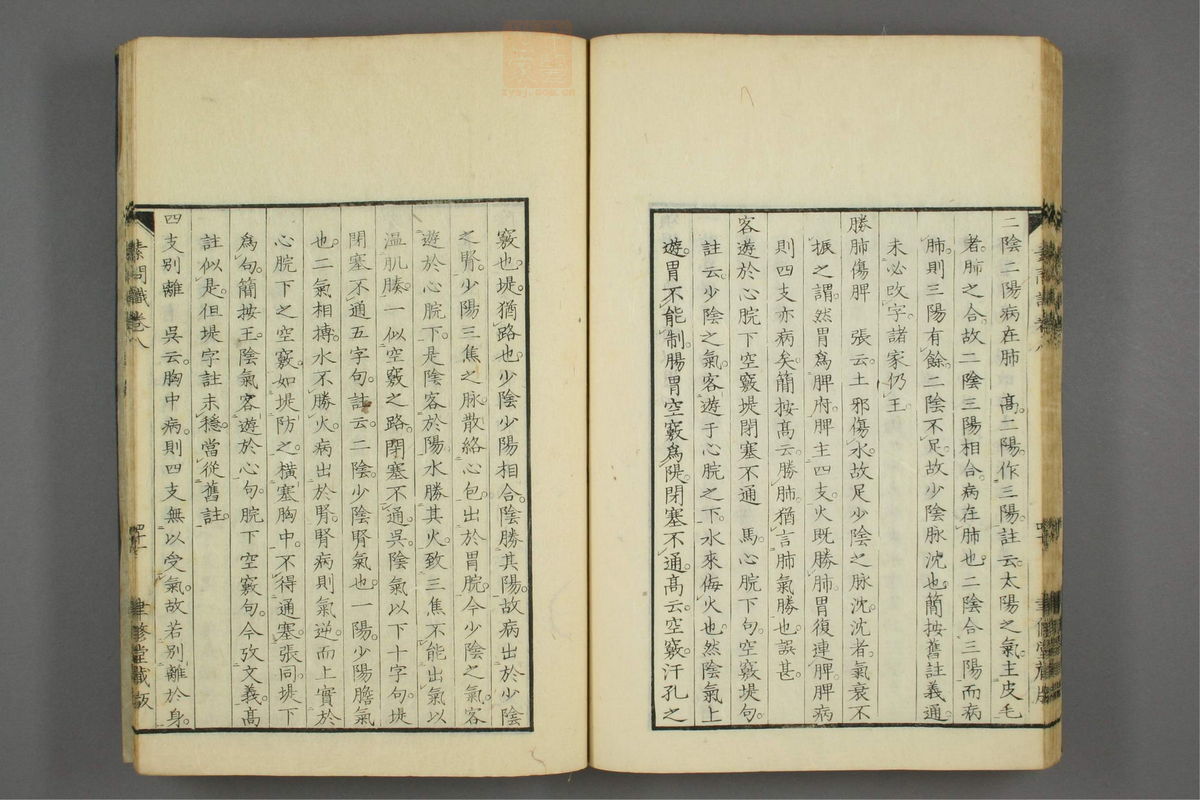 二陰二陽病在肺　高二陽作三陽註云太陽之氣主皮毛
者肺之合故二陰三陽相合病在肺也二陰合三陽而病
肺則三陽有餘二陰不足故少陰脉沈也簡按舊註義通
未必改字諸家仍王
勝肺傷脾　張云土邪傷水故足少陰之脉沈沈者氣衰不
振之謂然胃爲脾府脾主四支火既勝肺胃復連脾脾病
則四支亦病矣簡按高云勝肺猶言肺氣勝也誤甚
客遊於心脘下空竅堤閉塞不通　馬心脘下句空竅堤句
註云少陰之氣客遊于心脘之下水來侮火也然陰氣上
遊胃不能制腸胃空竅爲隄閉塞不通高云空竅汗孔之
竅也堤猶路也少陰少陽相合陰勝其陽故病出於少陰
之腎少陽三焦之脉散絡心包出於胃脘今少陰之氣客
遊於心脘下是陰客於陽水勝其火致三焦不能出氣以
溫肌腠一似空竅之路閉塞不通吳陰氣以下十字句堤
閉塞不通五字句註云二陰少陰腎氣也一陽少陽膽氣
也二氣相搏水不勝火病出於腎腎病則氣逆而上實於
心脘下之空竅如堤防之橫塞胸中不得通塞張同堤下
爲句簡按王陰氣客遊於心句脘下空竅句今攷文義高
註似是但堤字註未穩當從舊註
四支別離　吳云胸中病則四支無以受氣故若別離於身
素問識卷八
聿修堂藏版